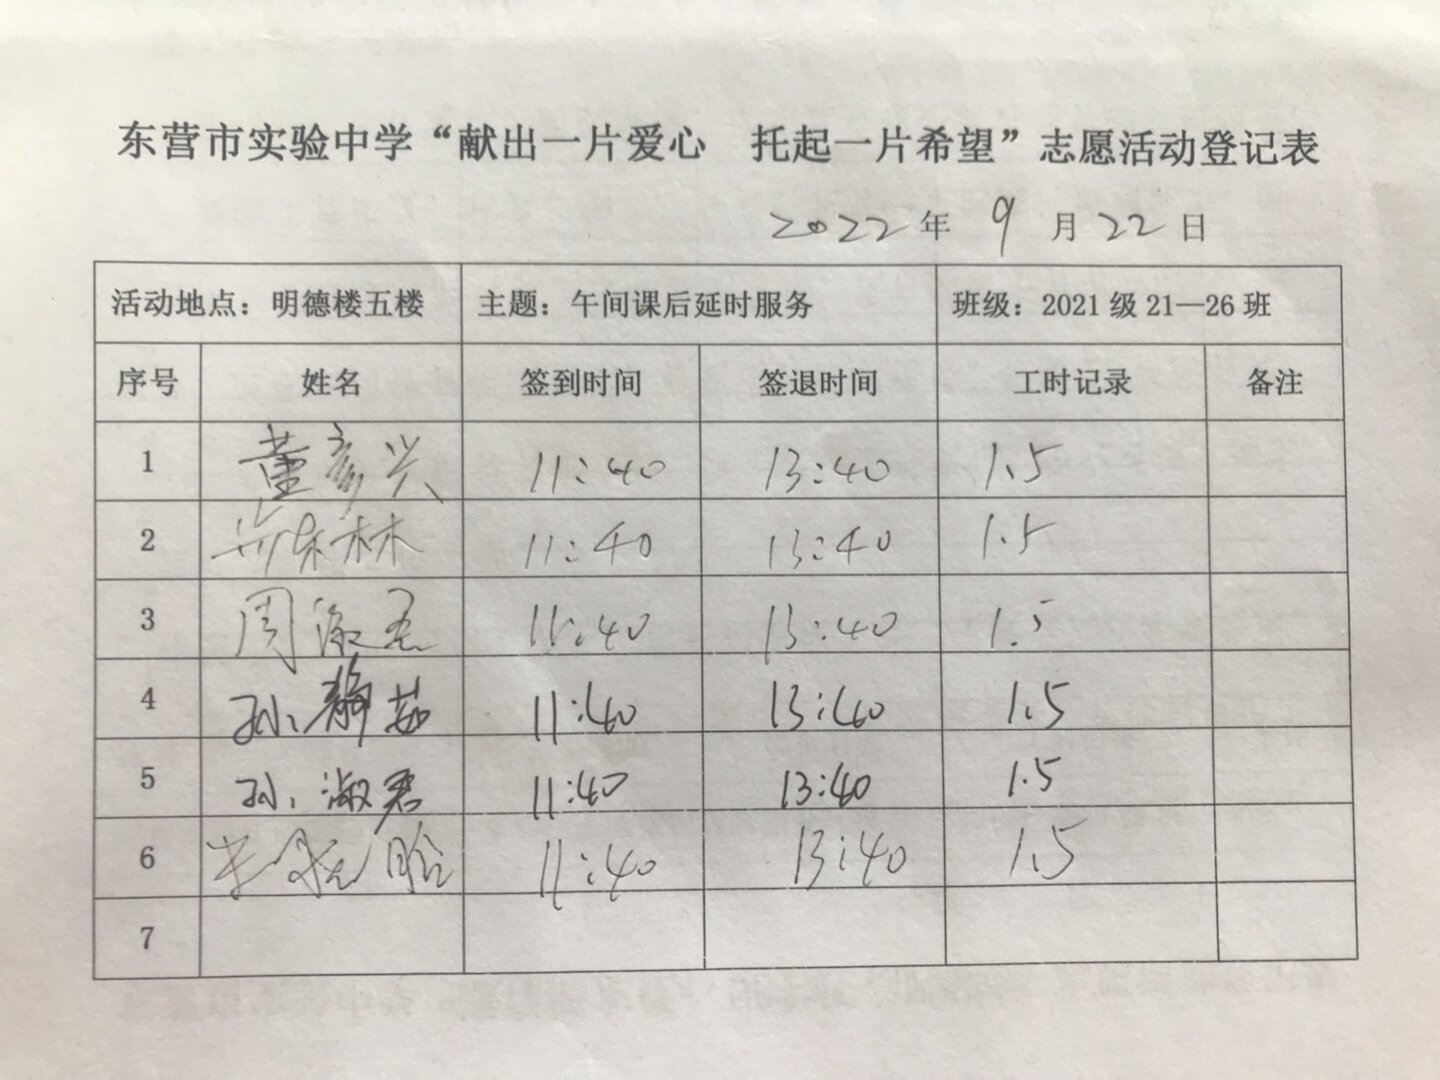 东营市实验中学“献出一片爱心 托起一片希望”志愿活动登记表
2022年 9月22日
活动地点：明德楼五楼 主题：午间课后延时服务 班级：2021级21—26班
序号 姓名 签到时间 签退时间 工时记录 备注
1 董彦兴 11:40 13:40 1.5
2 林 11:40 13:40 1.5
3 周淑君 11:40 13:40 1.5
4 孙静茹 11:40 13:40 1.5
5 孙淑君 11:40 13:40 1.5
6 11:40 13:40 1.5
7